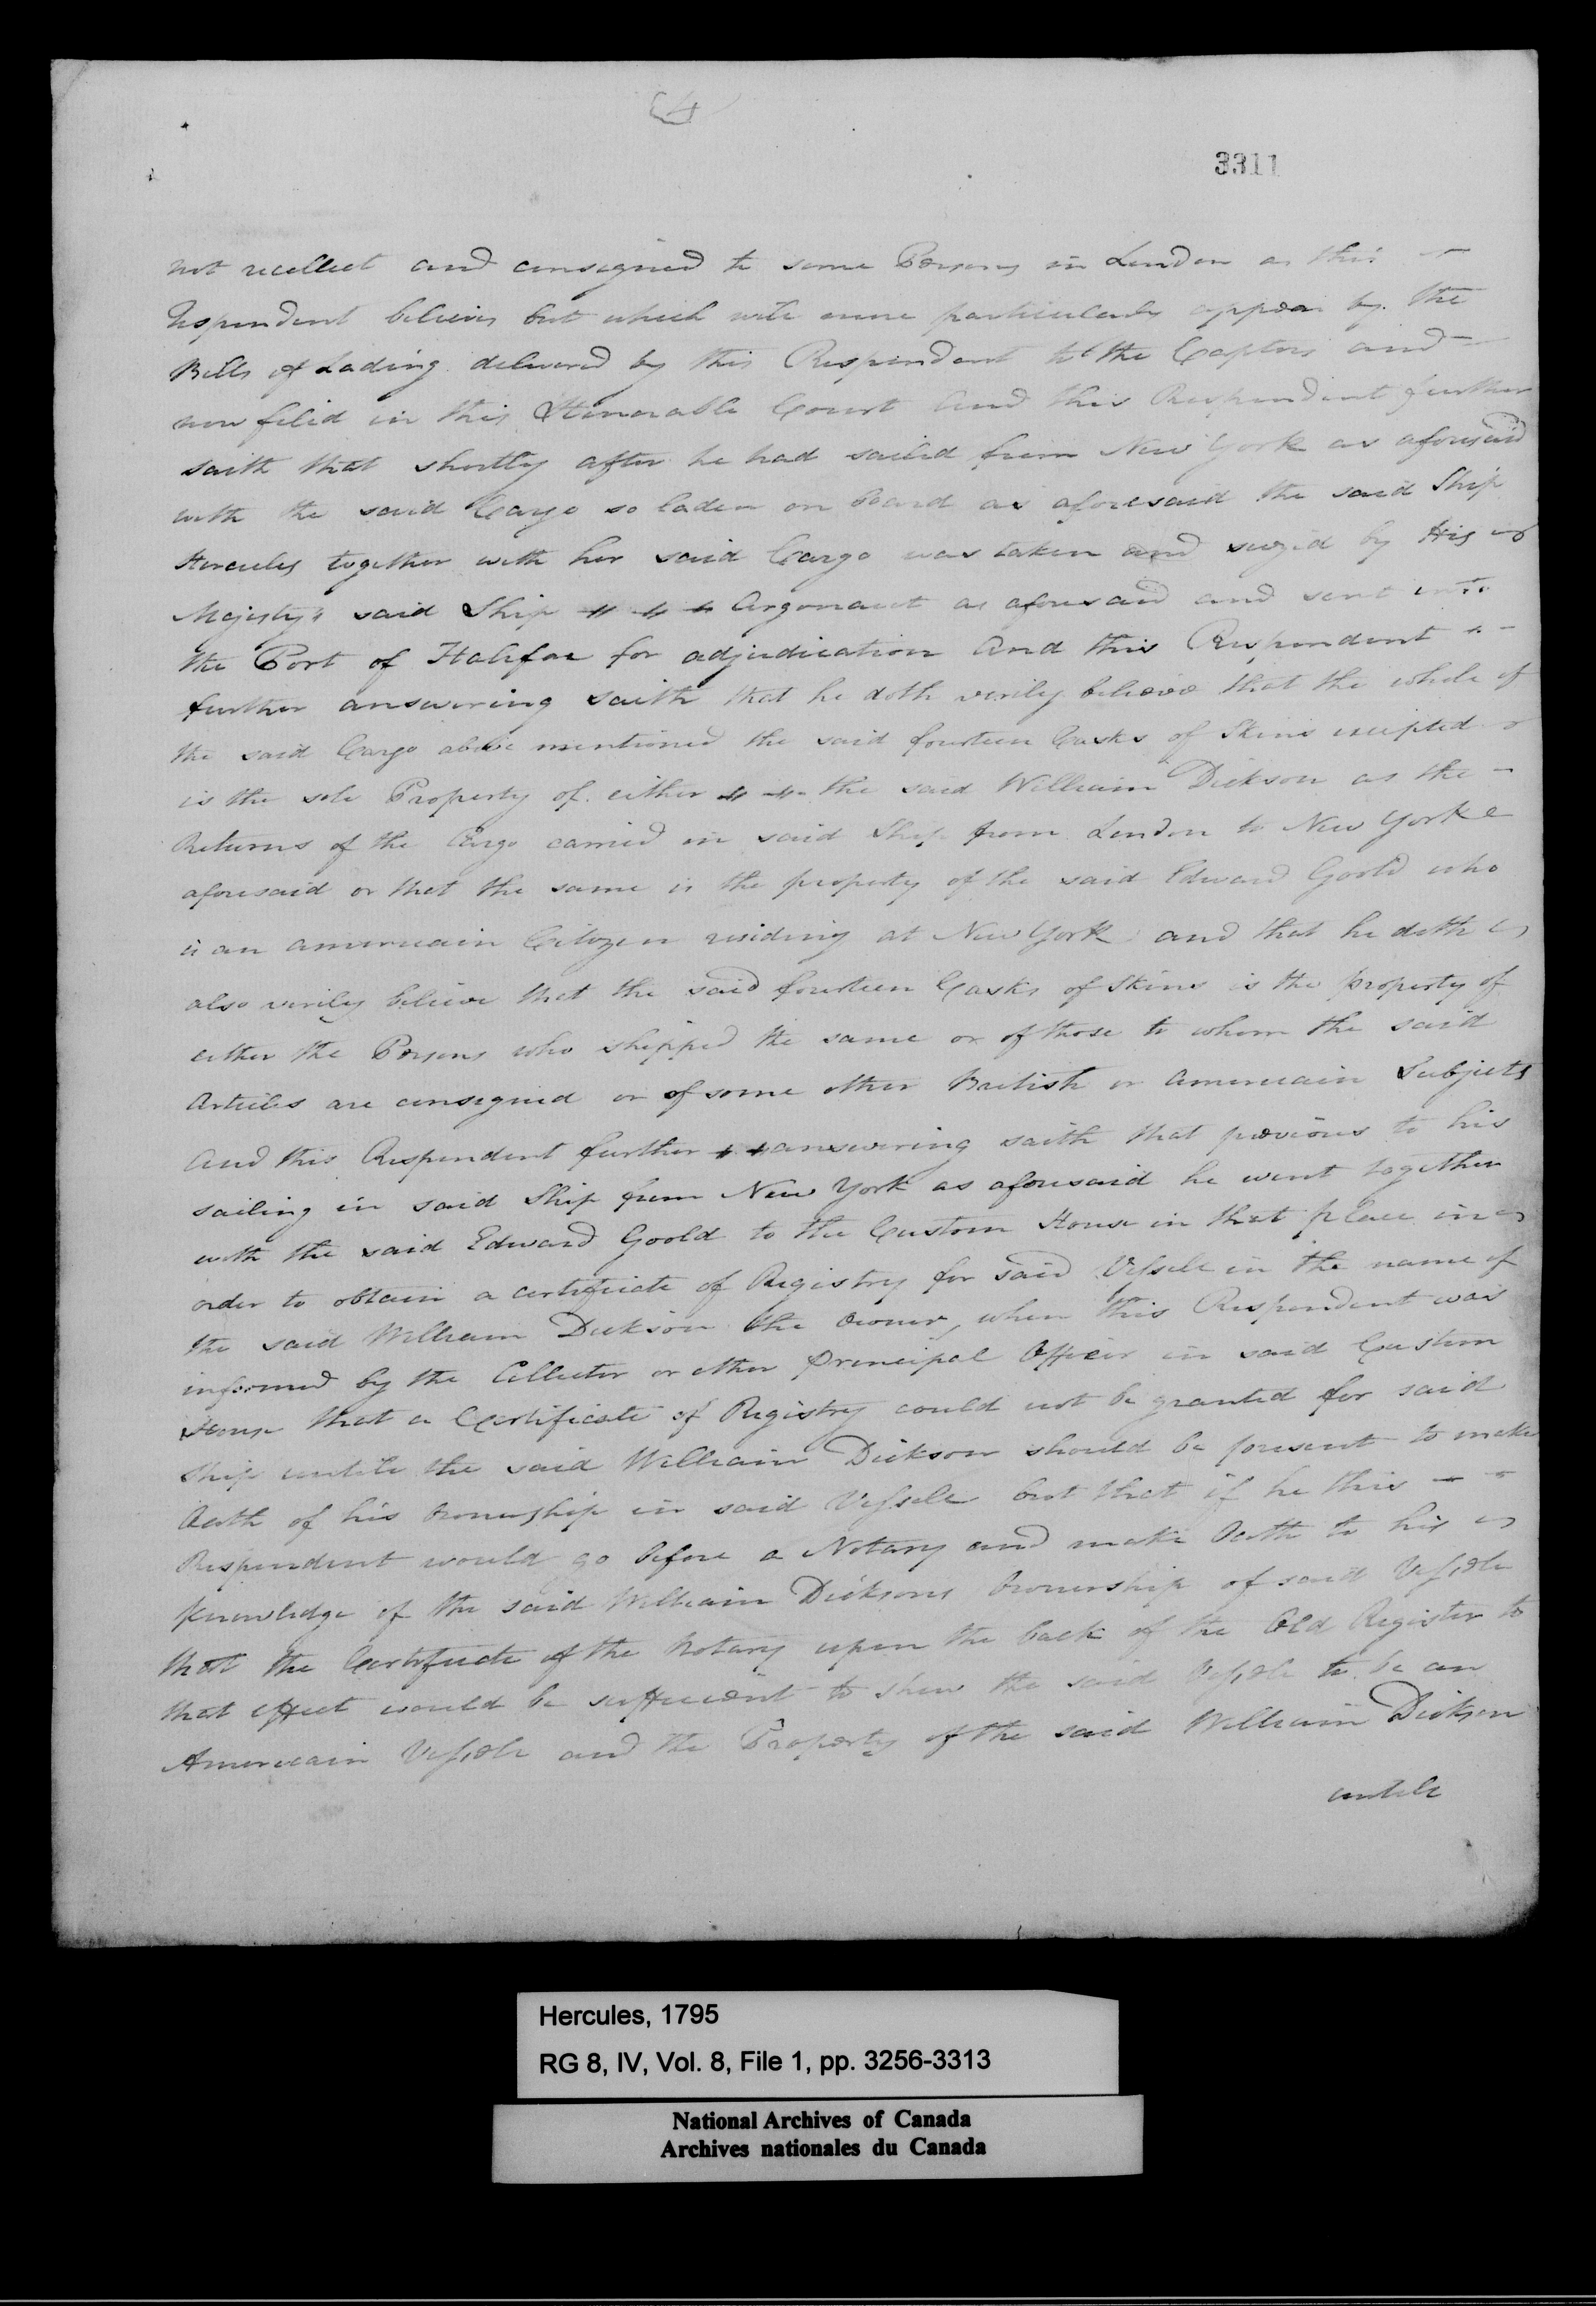 3311
not recollect and consigned to some Persons in London as this
Respondent believes but which will more particularly appear by the
Bills of Lading delivered by this Respondent to the Captors and
now filed in this Honorable Court And this Respondent further
saith that shortly after he had sailed from New York as aforesaid
with the said Cargo so laden on board as aforesaid the said Ship
Hercules together with her said Cargo was taken and seized by His
Majesty's said Ship Argonaut as aforesaid and sent into
the Port of Halifax for adjudication And this Respondent
further answering saith that he doth verily believe that the whole of
the said Cargo above mentioned the said fourteen Casks of Skins excepted
is the sole Property of either the said William Dickson as the
Returns of the Cargo carried in said Ship from London to New York
aforesaid or that the same is the property of the said Edward Goold who
is an amerucain Citizen residing at New York and that he doth
also verily believe that the said fourteen Casks of Skins is the property of
either the Persons who shipped the same or of those to whom the said
Articles are consigned or of some other British or Amerucain Subjects
And this Respondent further answering saith that previous to his
sailing in said Ship from New York as aforesaid he went together
with the said Edward Goold to the Custom House in that place in
order to obtain a certificate of Registry for said Vessele in the name of
the said William Dickson the owner, when this Respondent was
informed by the Collector or other Principal Officer in said Custom
House that a Certificate of Registry could not be granted for said
Ship untile the said William Dickson should be present to make
Oath of his Ownership in said Vessele but that if he this
Respondent would go before a Notary and make Oath to his
Knowledge of the said William Dicksons Ownership of said Vessele
that the Certificate of the Notary upon the back of the Old Register to
that effect would be sufficient to shew the said Vessele to be an
Amerucain Vessele and the Property of the said William Dickson
untile
Hercules, 1795
RG 8, IV, Vol. 8, File 1, pp. 3256-3313
National Archives of Canada
Archives nationales du Canada